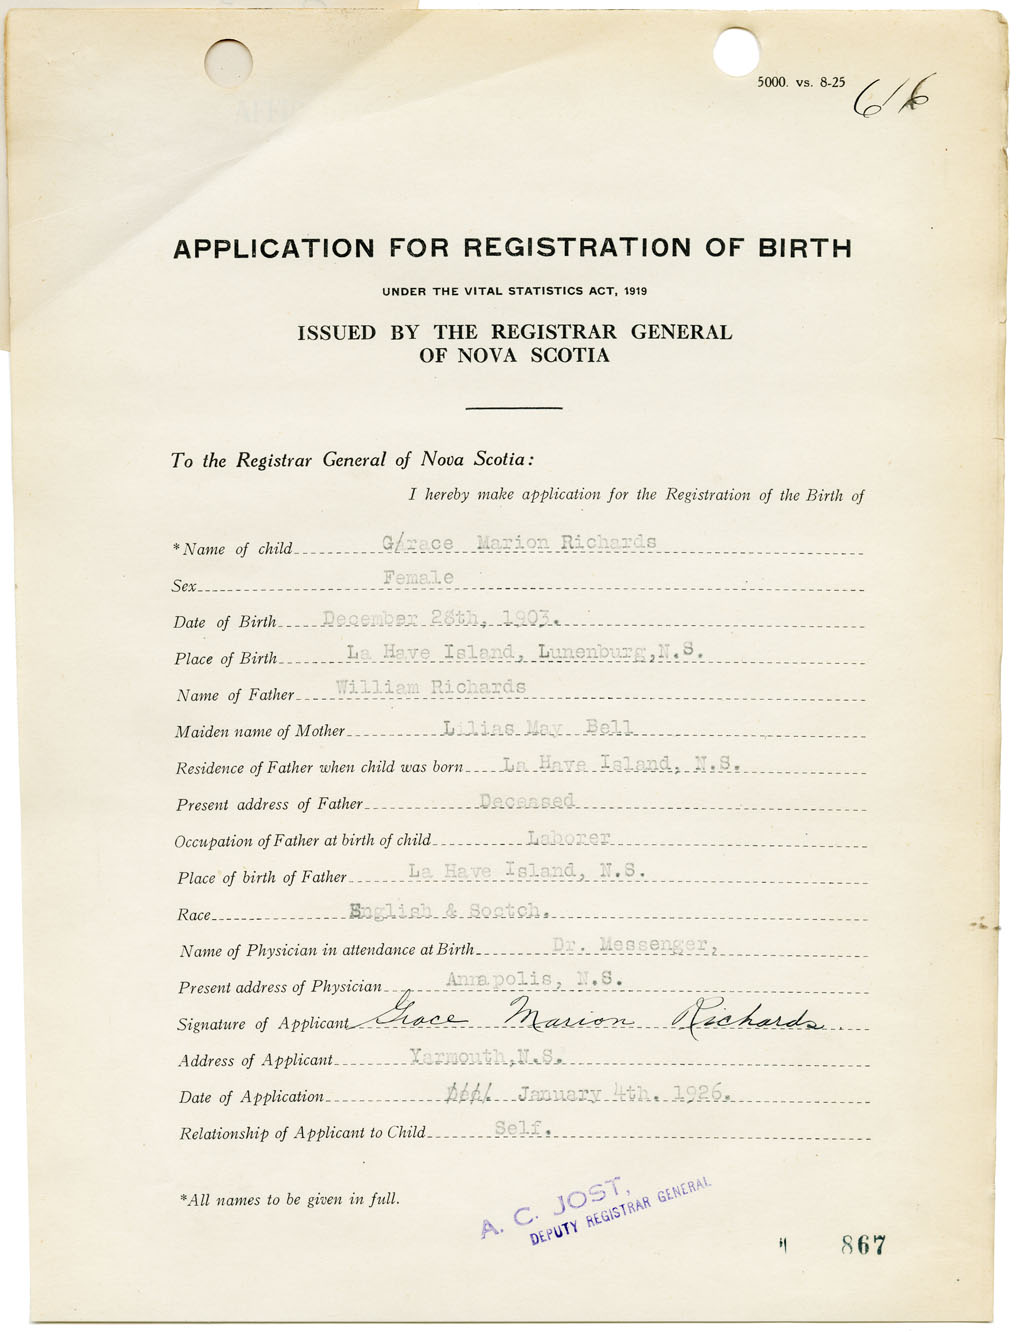 5000. vs. 8-25
616
APPLICATION FOR REGISTRATION OF BIRTH
UNDER THE VITAL STATISTICS ACT, 1919
ISSUED BY THE REGISTRAR GENERAL
OF NOVA SCOTIA
To the Registrar General of Nova Scotia:
I hereby make application for the Registration of the Birth of
*Name of child G/race Marion Richards
Sex Female
Date of Birth December 28th, 1903.
Place of Birth La Have Island, Lunenburg,N.S.
Name of Father William Richards
Maiden name of Mother Lilias May Bell
Residence of Father when child was born La Have Island, N.S.
Present address of Father Deceased
Occupation of Father at birth of child Laborer
Place of birth of Father La Have Island, N.S.
Race English & Soctch.
Name of Physician in attendance at Birth Dr. Messenger,
Present address of Physician Annapolis, N.S.
Signature of Applicant Grace Marion Richards
Address of Applicant Yarmouth,N.S.
Date of Application January 4th. 1926.
Relationship of Applicant to Child Self.
*All names to be given in full.
A. C. JOST,
DEPUTY REGISTRAR GENERAL
867